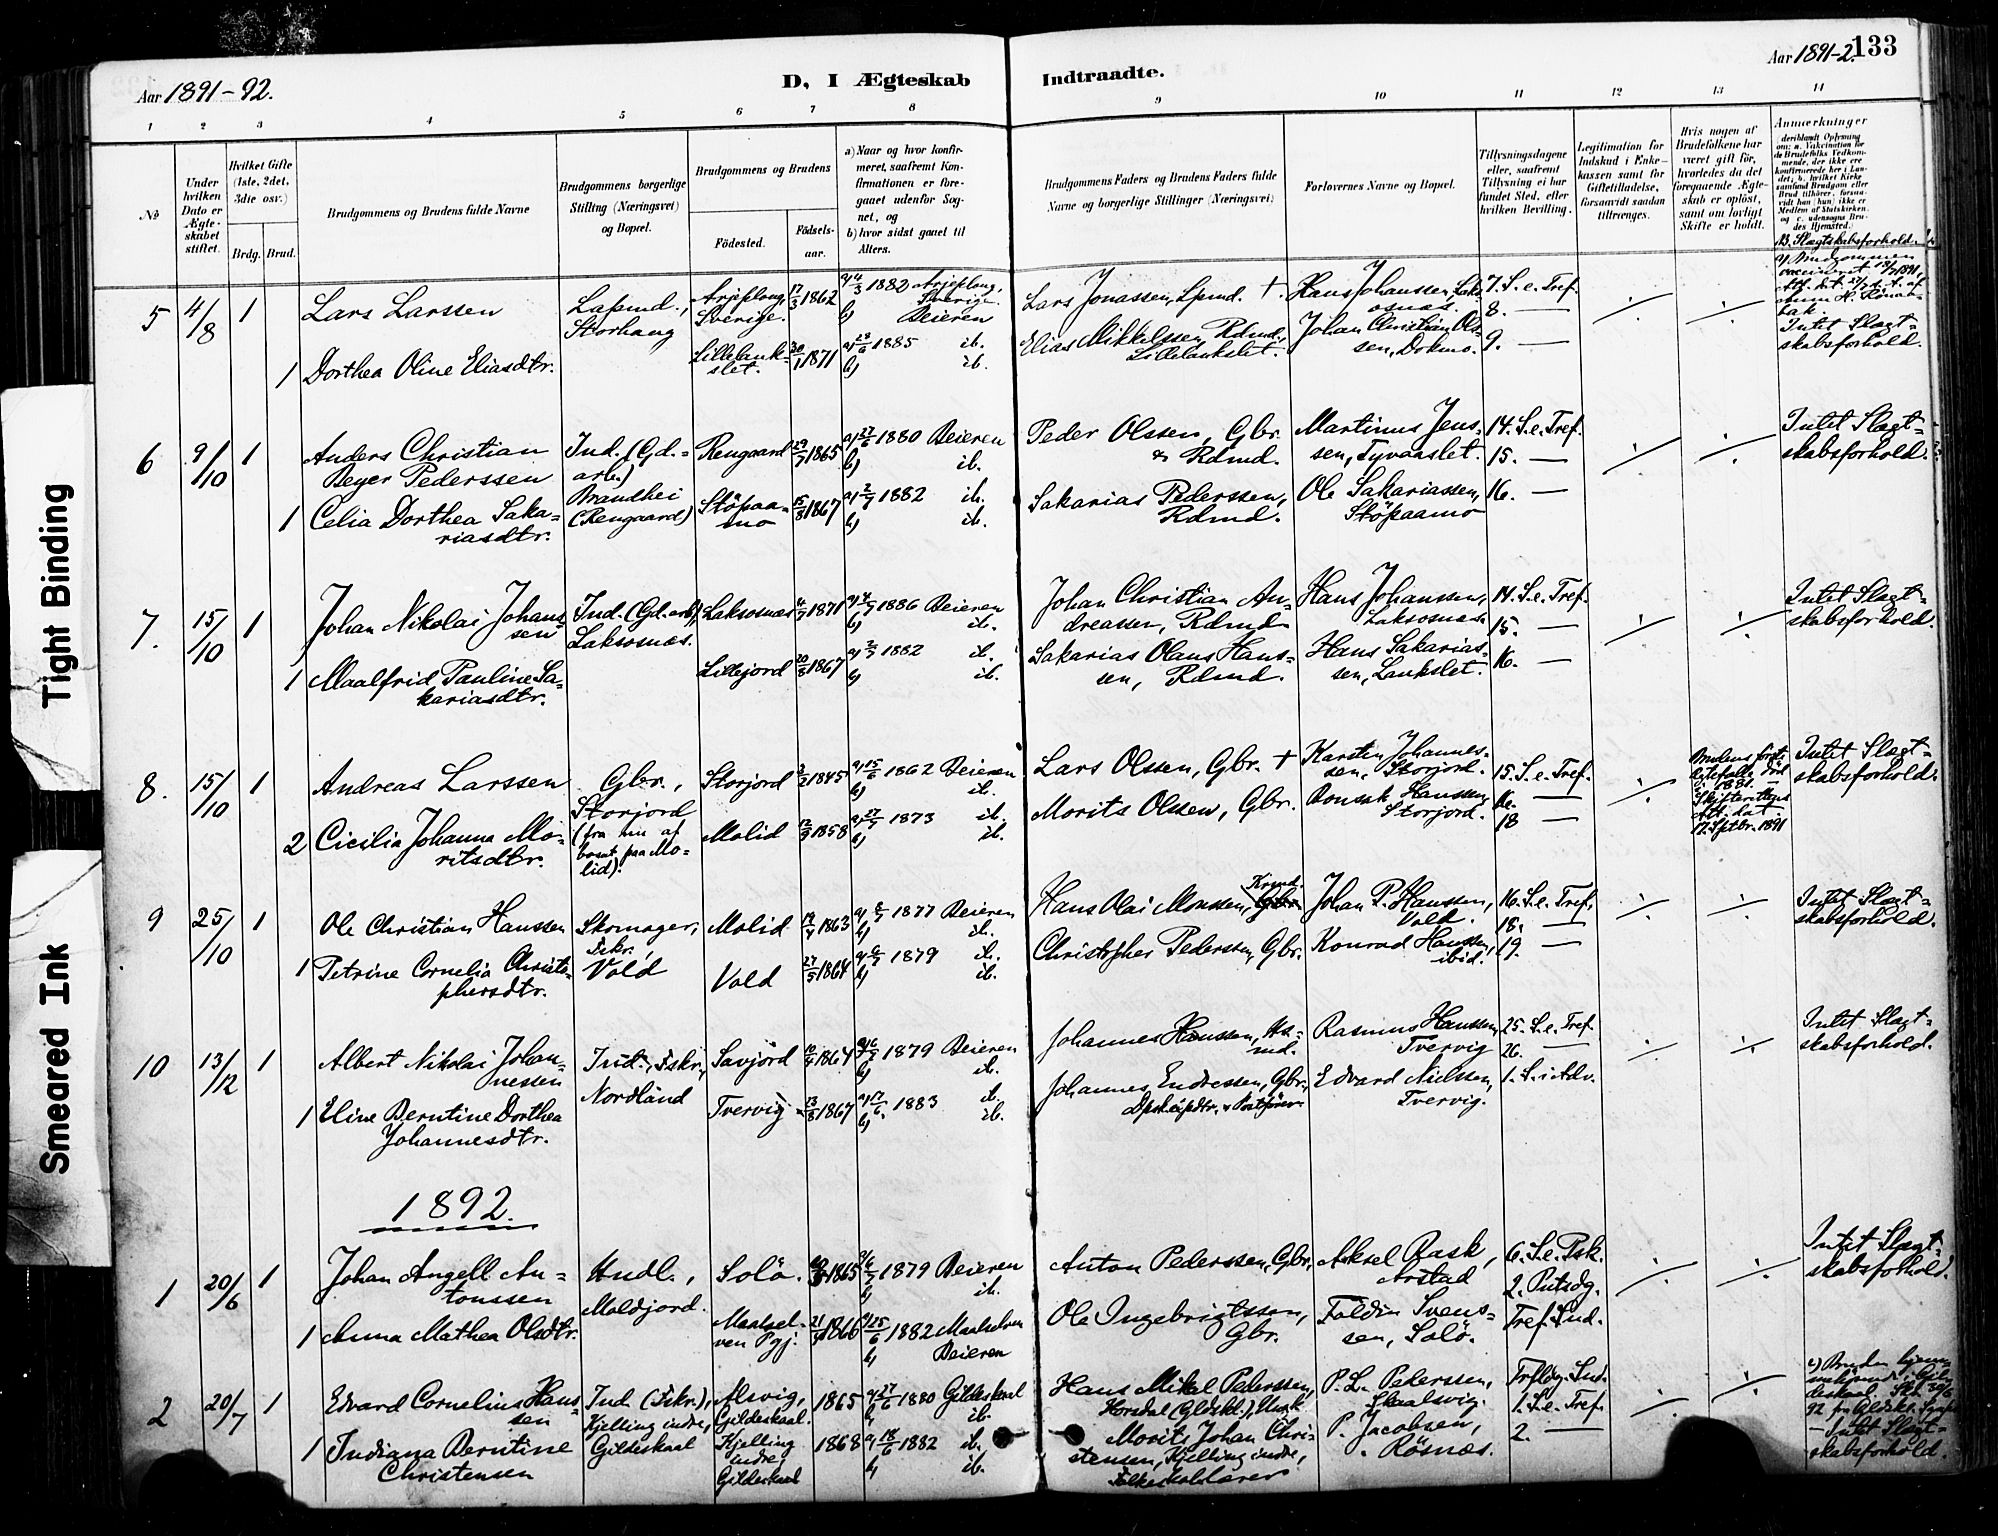 Aar 1891-92.
D, I Ægteskab Indtraadte.
Aar 1891-2. 133
1 2 3 4 5 6 7 8 9 10 11 12 13 14
No
Under hvilken Dato er Ægteskabet stiftet.
Hvilket Gifte (1ste, 2det, 3die osv.)
Brdg. Brud.
Brudgommens og Brudens fulde Navne
Brudgommens borgerlige Stilling (Næringsvei) og Bopæl.
Brudgommens og Brudens
Fødested.
Fødselsaar.
a) Naar og hvor konfirmeret, saafremt Konfirmationen er foregaaet udenfor Sognet, og
b) hvor sidst gaaet til Alters.
Brudgommens Faders og Brudens Faders fulde Navne og borgerlige Stillinger (Næringsvei)
Forlovernes Navne og Bopæl.
Tillysningsdagene eller, saafremt Tillysning ei har fundet Sted, efter hvilken Bevilling.
Legitimation for Indskud i Enkekassen samt for Giftetilladelse, forsaavidt saadan tiltrænges.
Hvis nogen af Brudefolkene har været gift før, hvorledes da det foregaaende Ægteskab er opløst, samt om lovligt Skifte er holdt.
Anmærkninger
5 4/8 1 Lars Larssen
Lapmd., Storhaug
Arjeploug, Sverige. 17/3 1862
a) 4/3 1882 Arjeploug, Sverige
b) Beieren
Lars Jonassen, Lpmd. +
Hans Johanssen, Laksosnæs.
7. S. e. Tref.
8. —
9. —
1 Dorthea Oline Eliasdtr.
Lilleleukslet. 30/1 1871
a) 28/6 1885 ib.
b) ib.
Elias Mikkelssen, Rdmd., Lilleleukslet.
Johan Christian Olssen, Dokmo.
Intet Slægtskabsforhold.
6 9/10 1 Anders Christian Beyer Pederssen
Ind. (Gd.arb.) Brandhei (Rengaard)
Rengaard 29/7 1865
a) 27/6 1880 Beieren
b) ib.
Peder Olssen, Gbr. & Rdmd.
Martinus Jenssen, Tyvaaslet.
14. S. e. Tref.
15. —
16. —
Intet Slægtskabsforhold.
1 Celia Dorthea Sakariasdtr.
Stöpaamo 15/8 1867
a) 2/7 1882 ib.
b) ib.
Sakarias Pederssen, Rdmd.
Ole Sakariassen, Stöpaamo
7. 15/10 1 Johan Nikolai Johanssen
Ind. (Gd.arb), Laksosnæs.
Laksosnæs 1871
a) 4/7 1886 Beieren
b) ib.
Johan Christian Andreassen, Rdmd
Hans Johanssen, Laksosnæs
14. S. e. Tref.
15. —
16. —
Intet Slægtskabsforhold.
1 Maalfrid Pauline Sakariasdtr.
Lillejord 20/8 1867
a) 2/7 1882 ib.
b) ib.
Sakarias Olaus Hanssen, Rdmd.
Hans Sakariassen, Leukslet.
8. 15/10 1 Andreas Larssen
Gbr., Storjord (før hun af bosat paa Molid).
Storjord 1845
a) 15/6 1862 Beieren
b) ib.
Lars Olssen, Gbr. +
Karsten Johannessen, Storjord.
15. S. e. Tref.
16. —
18 —
Brudens første Ægtefælle død i 1881. Skifterettens Att. dat. 17. Septbr. 1891
Intet Slægtskabsforhold.
2 Cicilia Johanna Moritsdtr.
Molid 12/3 1858
a) 27/7 1873 ib.
b) ib.
Morits Olssen, Gbr.
Bonsak Hanssen, Storjord.
9 25/10 1 Ole Christian Hanssen
Skomager, Fskr. Vold
Molid 1863
a) 8/7 1877 Beieren
b) ib.
Hans Olai Monssen, Gbr. Krmd.
Johan P. Hanssen, Vold.
16. S. e. Tref.
18. —
19. —
Intet Slægtskabsforhold.
1 Petrine Cornelia Christophersdtr.
Vold 27/5 1864
a) 6/7 1879 ib.
b) ib.
Christopher Pederssen, Gbr.
Konrad Hanssen, ibid.
10 13/12 1 Albert Nikolai Johannessen
Ind., Fskr., Nordland
Savjord 1864
1879 Beieren
b) ib.
Johannes Hanssen, Hsmd.
Rasmus Hanssen, Tvervig
25. S. e. Tref.
26. —
1. S. i Adv.
Intet Slægtskabsforhold.
1 Eline Berntine Dorthea Johannesdtr.
Tvervig 23/8 1867
a) 17/6 1883 ib.
b) ib.
Johannes Endressen, Gbr.,
Edvard Nielssen, Tvervig.
1892.
1 20/6 1 Johan Angell Antonssen
Hndl., Moldjord.
Solö. 1865
1879 Beieren
b) ib.
Anton Pederssen, Gbr,
Aksel Rask, Arstad
6. S. e. Psk.
2. Pintsdg.
Tref. Snd.
Intet Slægtskabsforhold.
1 Anna Mathea Olsdtr.
Maalselven Pgj. 1866
a) 25/6 1882 Maalselven
b) Beieren
Ole Ingebrigtssen, Gbr.
Foldin Svenssen, Solö.
2 20/7 1 Edvard Cornelius Hanssen
Ind (Fskr.), Kjelling indre, Gildeskaal
Alsvig, Gildeskaal. 1865
a) 27/6 1880 Gildeskaal
b) ib.
Hans Mikal Pederssen, Horsdal (Gldskl.),
P. L. Pederssen, Skaalsvig.
Trfldg. Snd.
1. S. e. Tref.
2. —
Intet Slægtskabsforhold.
1 Indiana Berntine Christensen
Kjelling indre, Gildeskaal 1868
a) 18/6 1882 ib.
b) ib.
Morit Johan Christensen, Kjelling indre, Folkeskolelærer
P. Jacobsen, Rösnæs.
Tight Binding
Smeared Ink